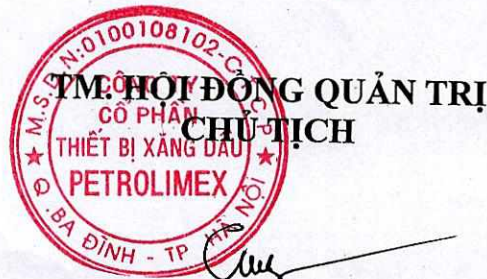 TM. HỘI ĐỒNG QUẢN TRỊ
CHỦ TỊCH
M.S.D.N:0100108102-C.T.C.P
CÔNG TY
CỔ PHẦN
THIẾT BỊ XĂNG DẦU
PETROLIMEX
Q. BA ĐÌNH - TP HÀ NỘI